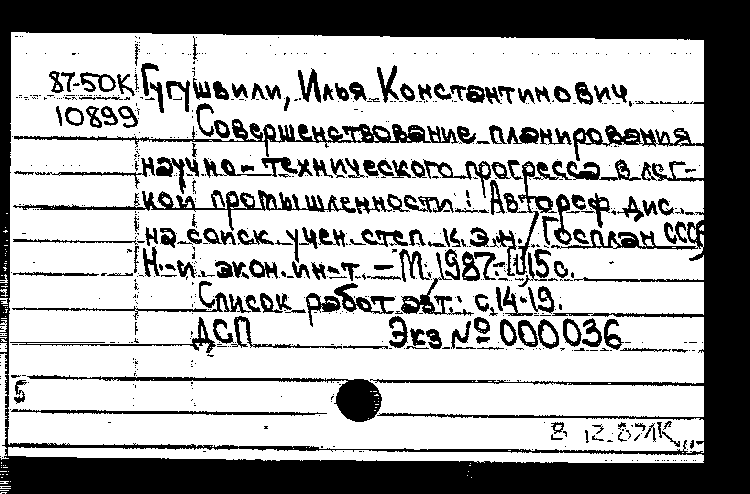 87-50К Гугушвили, Илья Константинович.
10899 Совершенствование планирования
научно-технического прогресса в лег-
кой промышленности: Автореф. дис.
на соиск. учен. степ. к.э.н. Госплан СССР
Н.-и. экон. ин-т. – М. 1987. 15 с.
Список работ авт.: с. 14-19.
ДСП Экз № 000036
5
В 12.87